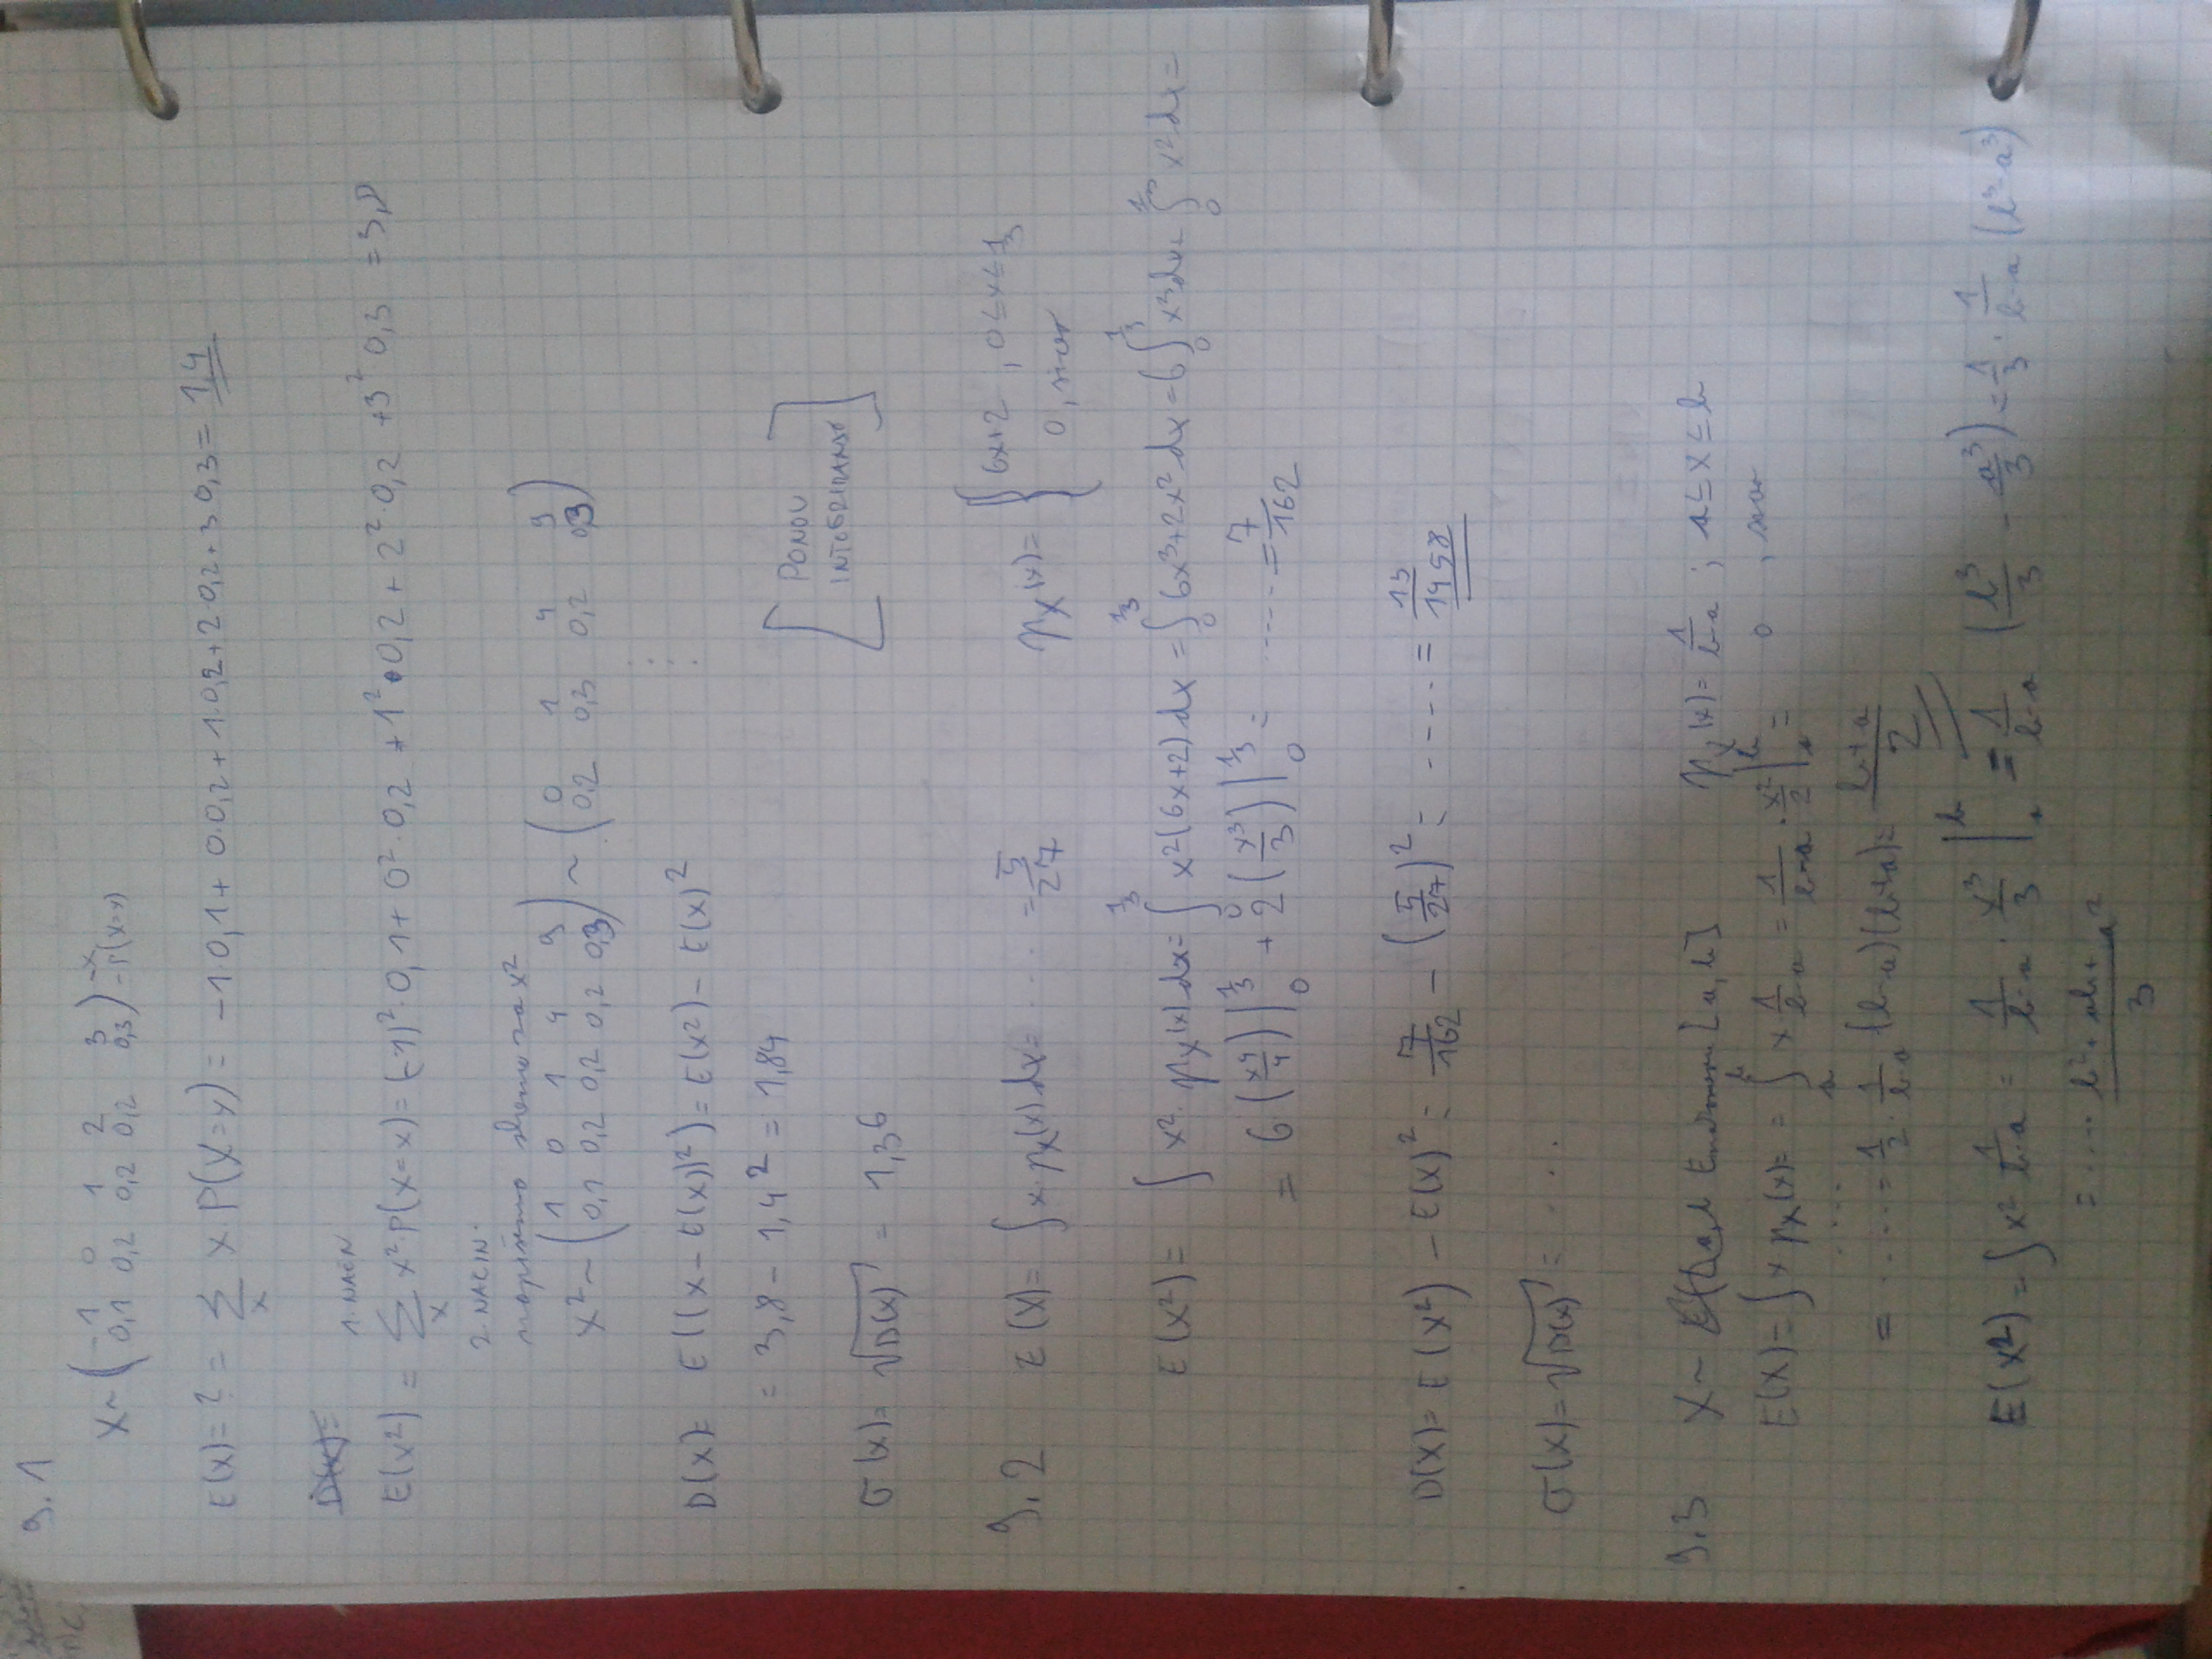 9.1
X ~ ( -1 0 1 2 3 ) - x
0,1 0,2 0,2 0,2 0,3 - P(X=x)
E(X) = ? = ∑x x P(X=x) = -1·0,1 + 0·0,2 + 1·0,2 + 2·0,2 + 3·0,3 = 1,4
D(X)=
1. NAČIN
E(X²) = ∑x x²·P(X=x) = (-1)²·0,1 + 0²·0,2 + 1²·0,2 + 2²·0,2 + 3²·0,3 = 3,8
2. NAČIN.
napišemo shemo za x²
X² ~ ( 1 0 1 4 9 ) ~ ( 0 1 4 9 )
0,1 0,2 0,2 0,2 0,3 0,2 0,3 0,2 0,3
D(X) = E((X - E(X))²) = E(X²) - E(X)²
= 3,8 - 1,4² = 1,84
PONOVI
INTEGRIRANJE
σ(X) = √D(X) = 1,36
9.2 E(X) = ∫ x·pX(x) dx = ..... = 5/27 pX(x) = { 6x+2 , 0≤x≤1/3
0, sicer
E(X²) = ∫ x²·pX(x) dx = ∫₀^{1/3} x²(6x+2) dx = ∫₀^{1/3} 6x³+2x² dx = 6∫₀^{1/3} x³dx + ∫₀^{1/3} x²dx =
= 6(x⁴/4)|₀^{1/3} + 2(x³/3)|₀^{1/3} = ...... = 7/162
D(X) = E(X²) - E(X)² = 7/162 - (5/27)² = ..... = 13/1458
σ(X) = √D(X) = ....
9.3 X ~ [a,b] pX(x) = 1/b-a ; a≤x≤b
0 , sicer
E(X) = ∫ x pX(x) = ∫ₐᵇ x 1/b-a = 1/b-a · x²/2 |ₐᵇ =
= ..... = 1/2 · 1/b-a (b-a)(b+a) = b+a/2
E(X²) = ∫ x² 1/b-a = 1/b-a · x³/3 |ₐᵇ = 1/b-a (b³/3 - a³/3) = 1/3 · 1/b-a (b³-a³)
= .... b²+ab+a²/3